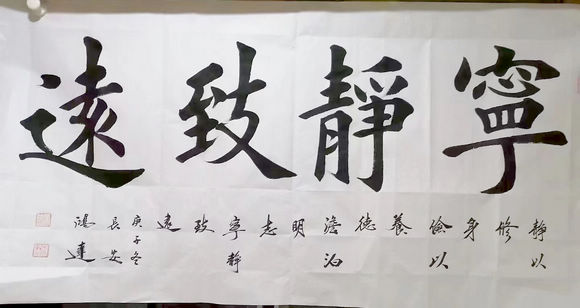 寧靜致遠
靜以修身儉以養德澹泊明志寧靜致遠
庚子冬
長安
鴻達